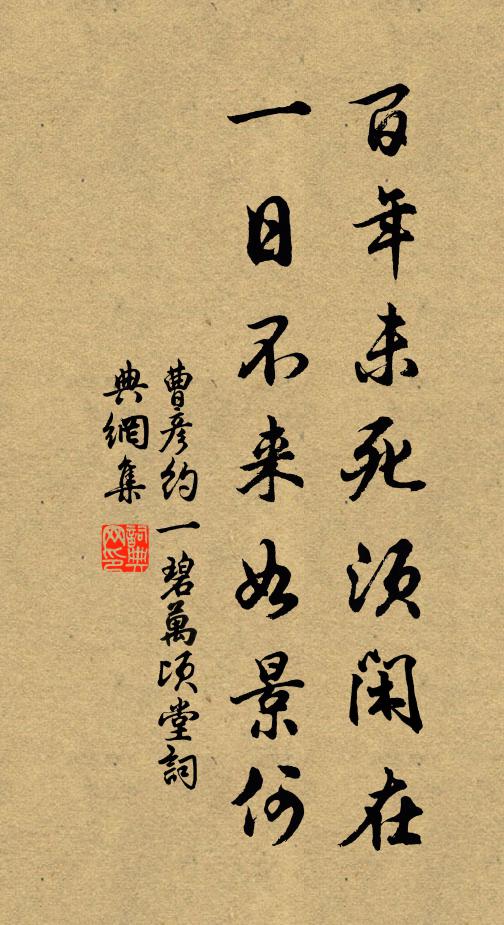 百年未死须闲在
一日不来如景何
曹彦约一碧萬顷堂詞
典網集
詞典网印